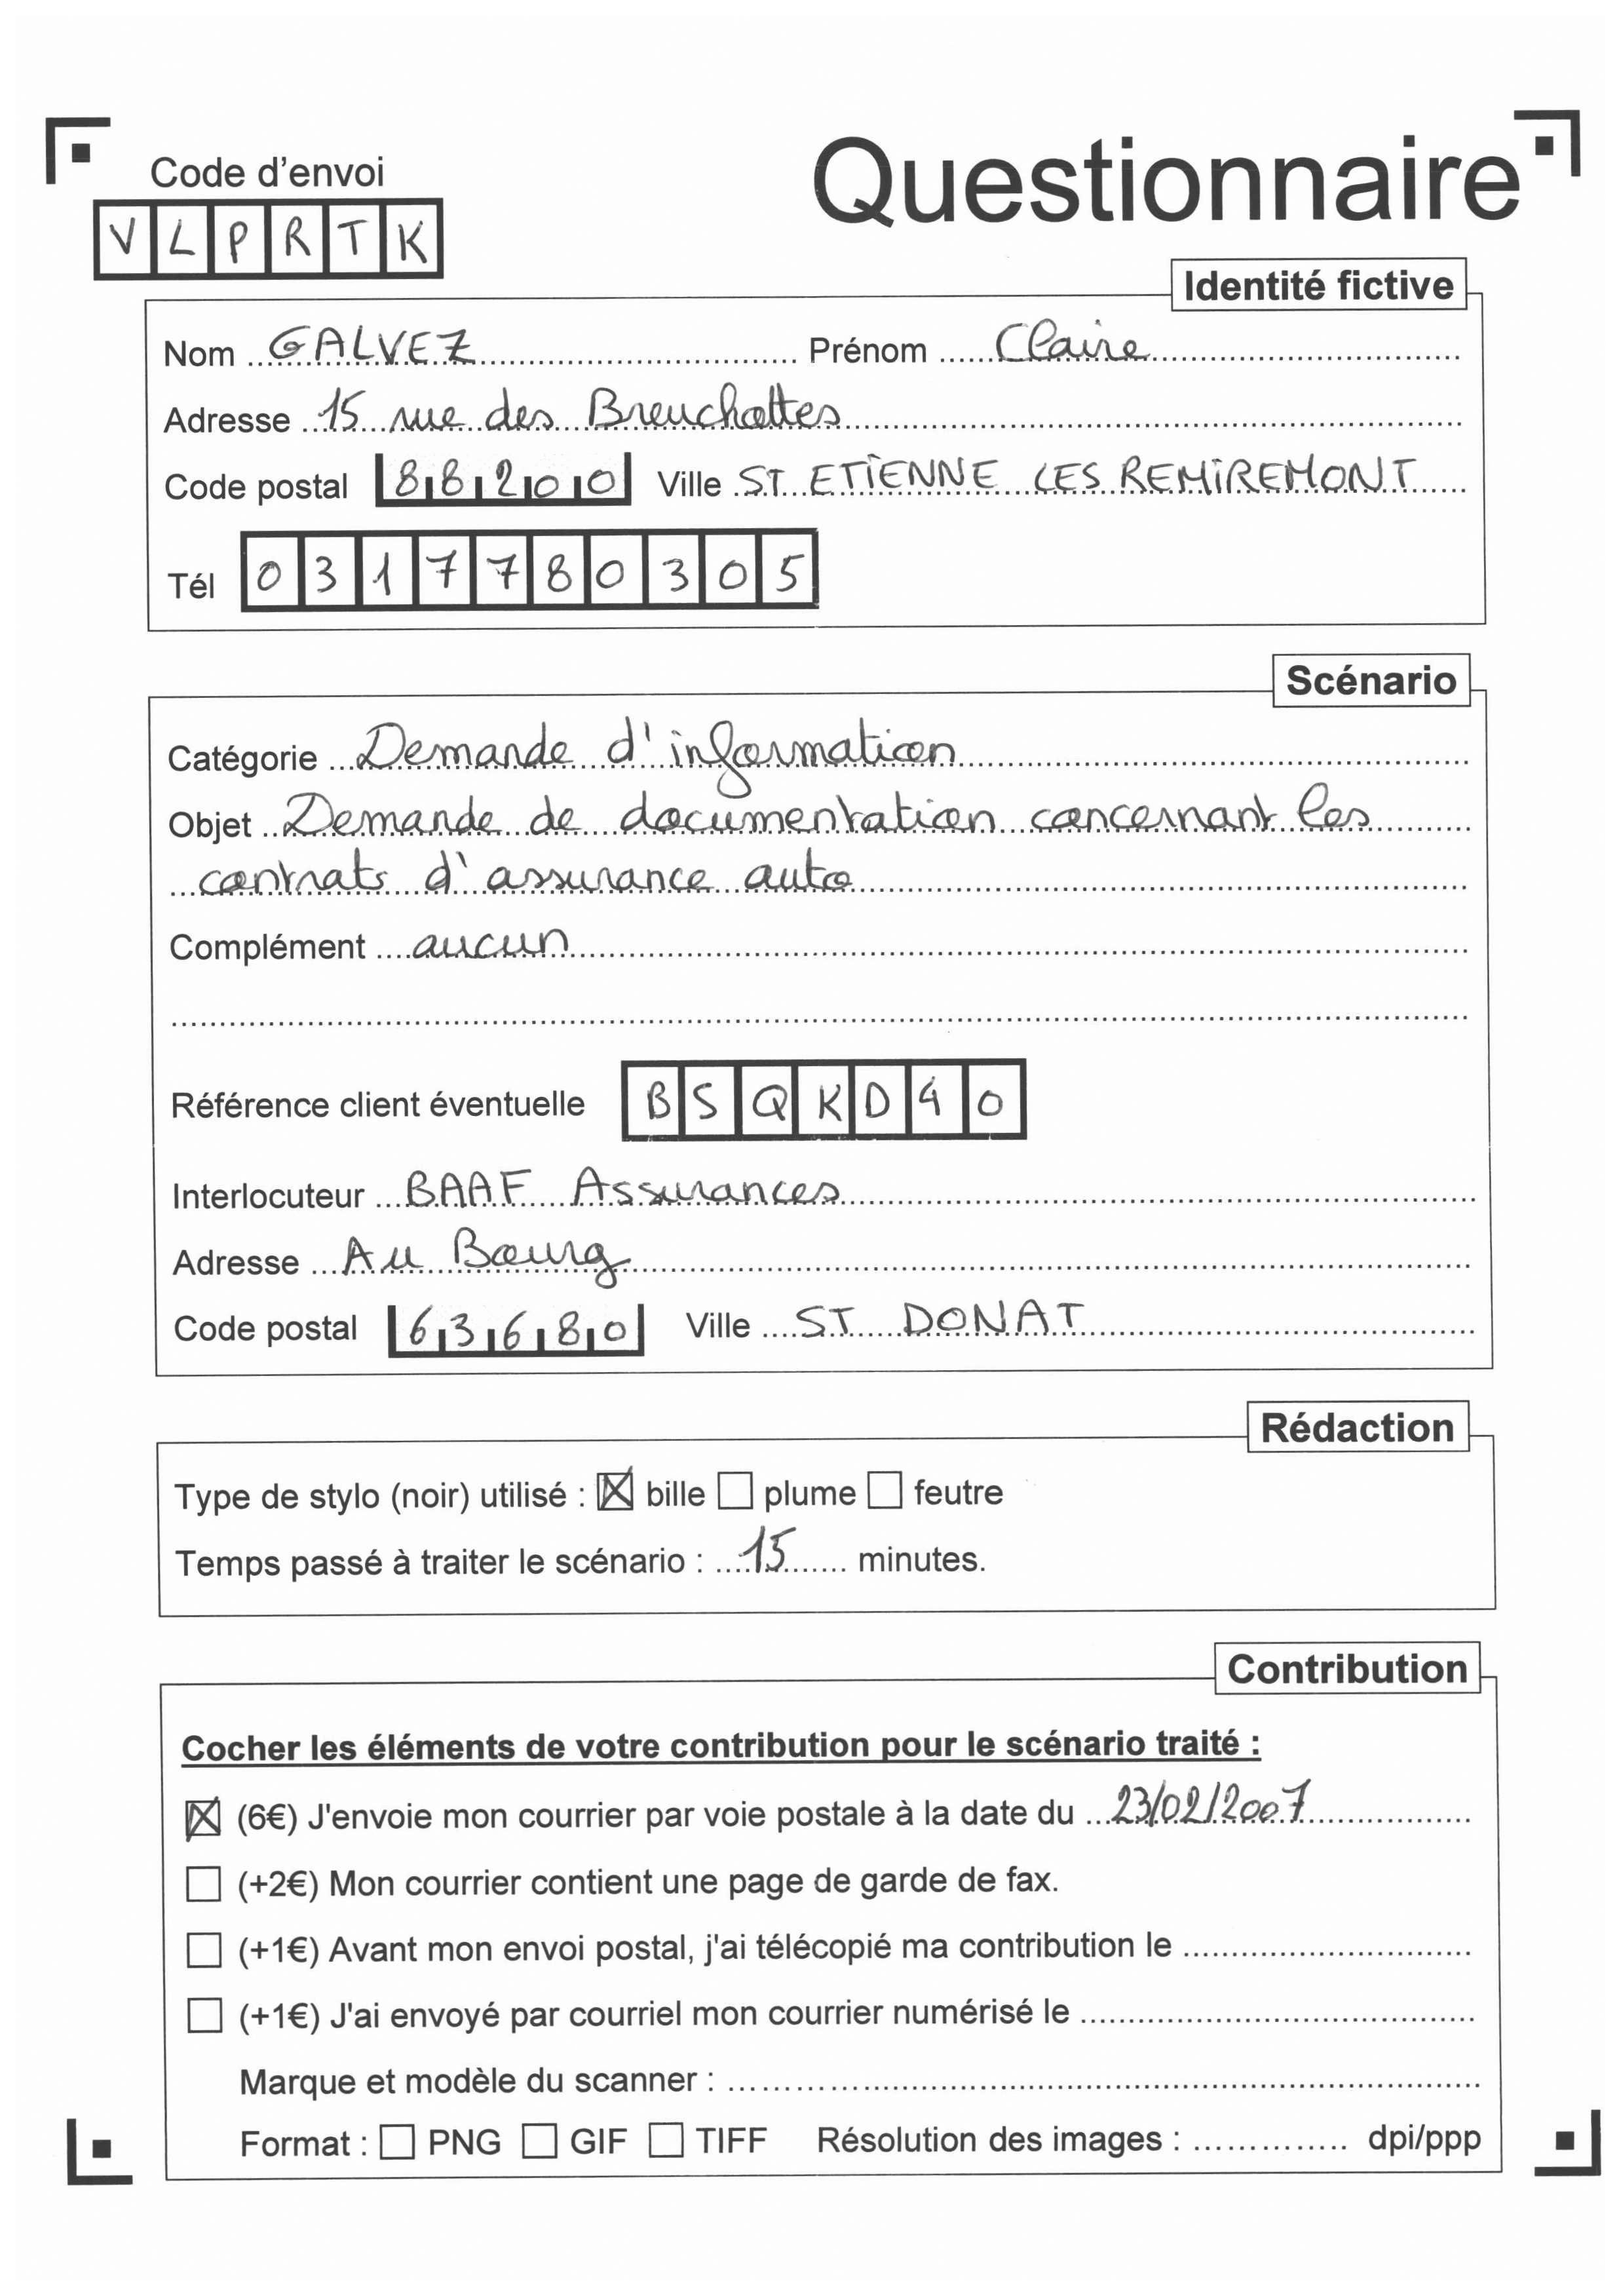 Code d'envoi
Questionnaire
VLPRTK
Identité fictive
Nom GALVEZ Prénom Claire
Adresse 15 rue des Breuchottes
Code postal 88200 Ville ST ETIENNE LES REMIREMONT
Tél 0317780305
Scénario
Catégorie Demande d'information
Objet Demande de documentation concernant les
contrats d'assurance auto
Complément aucun
Référence client éventuelle BSQKD40
Interlocuteur BAAF Assurances
Adresse Au Bourg
Code postal 63680 Ville ST DONAT
Rédaction
Type de stylo (noir) utilisé : ☒ bille ☐ plume ☐ feutre
Temps passé à traiter le scénario : 15 minutes.
Contribution
Cocher les éléments de votre contribution pour le scénario traité :
☒ (6€) J'envoie mon courrier par voie postale à la date du 23/02/2007
☐ (+2€) Mon courrier contient une page de garde de fax.
☐ (+1€) Avant mon envoi postal, j'ai télécopié ma contribution le
☐ (+1€) J'ai envoyé par courriel mon courrier numérisé le
Marque et modèle du scanner :
Format : ☐ PNG ☐ GIF ☐ TIFF Résolution des images : dpi/ppp